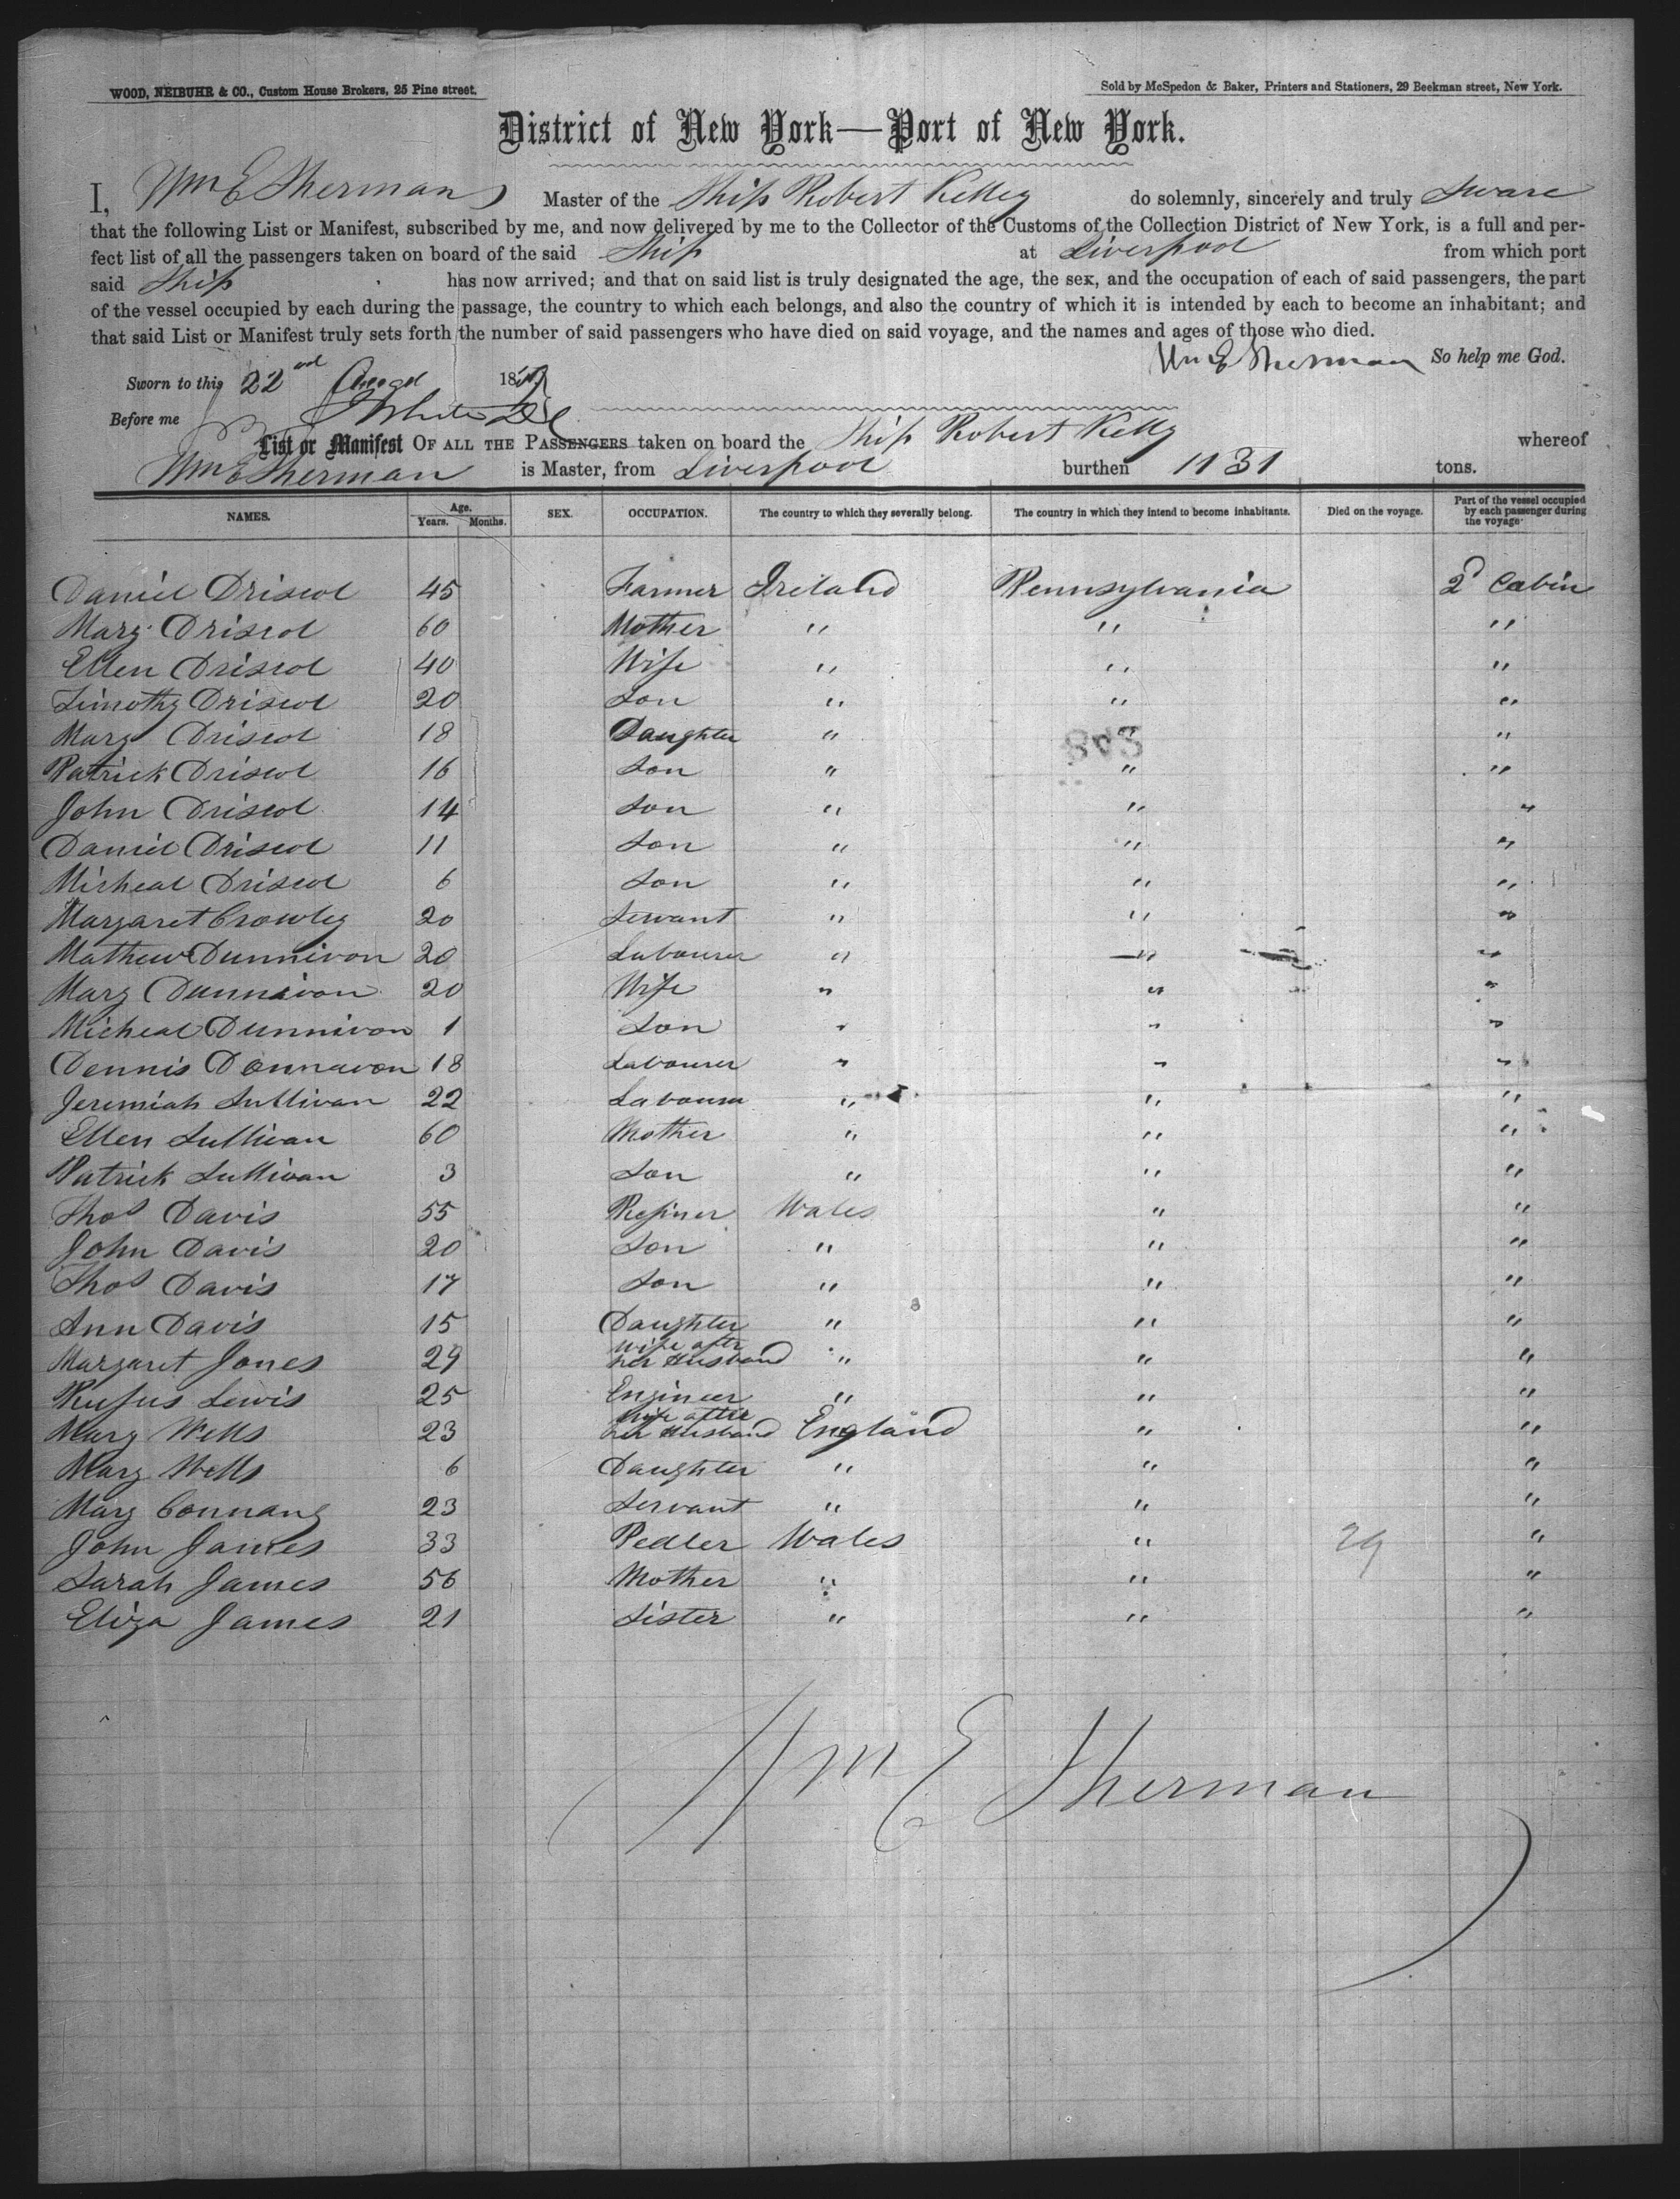 WOOD, NEIBUHR & CO., Custom House Brokers, 25 Pine street.
Sold by McSpedon & Baker, Printers and Stationers, 29 Beekman street, New York.
District of New York—Port of New York.
I, Wm E Sherman Master of the Ship Robert Kelley do solemnly, sincerely and truly Sware
that the following List or Manifest, subscribed by me, and now delivered by me to the Collector of the Customs of the Collection District of New York, is a full and per-
fect list of all the passengers taken on board of the said Ship at Liverpool from which port
said Ship has now arrived; and that on said list is truly designated the age, the sex, and the occupation of each of said passengers, the part
of the vessel occupied by each during the passage, the country to which each belongs, and also the country of which it is intended by each to become an inhabitant; and
that said List or Manifest truly sets forth the number of said passengers who have died on said voyage, and the names and ages of those who died.
Wm E Sherman So help me God.
Sworn to this 22nd 18
Before me
List or Manifest OF ALL THE PASSENGERS taken on board the Ship Robert Kelly whereof
Wm E Sherman is Master, from Liverpool burthen 1131 tons.
NAMES. Age. Years. Months. SEX. OCCUPATION. The country to which they severally belong. The country in which they intend to become inhabitants. Died on the voyage. Part of the vessel occupied by each passenger during the voyage
Daniel Driscol 45 Farmer Ireland Pennsylvania 2d Cabin
Mary Driscol 60 Mother " " "
Ellen Driscol 40 Wife " " "
Timothy Driscol 20 Son " " "
Mary Driscol 18 Daughter " " "
803
Patrick Driscol 16 Son " " "
John Driscol 14 Son " " "
Daniel Driscol 11 Son " " "
Micheal Driscol 6 Son " " "
Margaret Crowley 20 Servant " " "
Mathew Dunnivon 20 Labourer " " "
Mary Dunnivon 20 Wife " " "
Micheal Dunnivon 1 Son " " "
Dennis Donnavon 18 Labourer " " "
Jeremiah Sullivan 22 Labourer " " "
Ellen Sullivan 60 Mother " " "
Patrick Sullivan 3 Son " " "
Thos Davis 55 Refiner Wales " "
John Davis 20 Son " " "
Thos Davis 17 Son " " "
Ann Davis 15 Daughter " " "
Margaret Jones 29 Wife after her Husband " " "
Rufus Lewis 25 Engineer " " "
Mary Wells 23 Wife after her Husband England " "
Mary Wells 6 Daughter " " "
Mary Connang 23 Servant " " "
John James 33 Pedler Wales " 29 "
Sarah James 56 Mother " " "
Eliza James 21 Sister " " "
Wm E Sherman